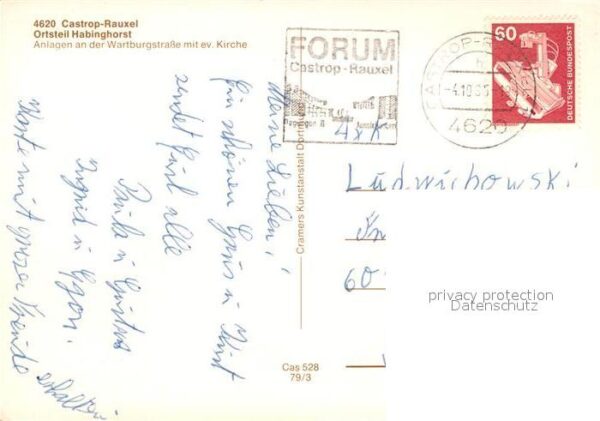 4620 Castrop-Rauxel
Ortsteil Habinghorst
Anlagen an der Wartburgstraße mit ev. Kirche
Meine Lieben!
Ein schönen Gruss u. Kust
sendet Euch alle
Paula u. Gustav
Ingrid u. Egon.
Karte mit grosser Freude
erhalten
Cramers Kunstanstalt Dortmund
Cas 528
79/3
FORUM
Castrop-Rauxel
CASTROP-RAUXEL
-4.10.
4620
60
DEUTSCHE BUNDESPOST
Ludwichowski
60
privacy protection
Datenschutz